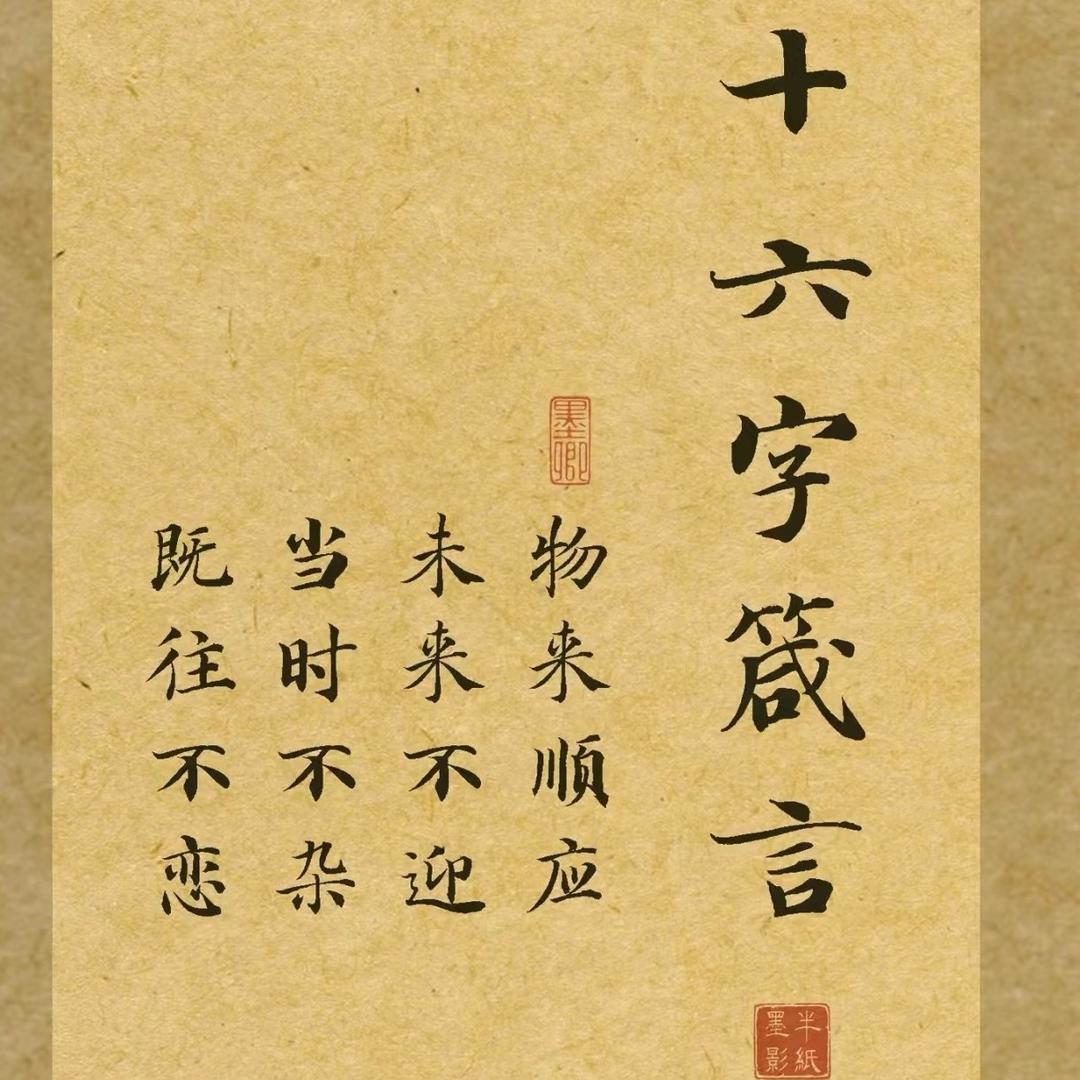 十六字箴言
物来顺应
未来不迎
当时不杂
既往不恋
墨卿
半紙
墨影